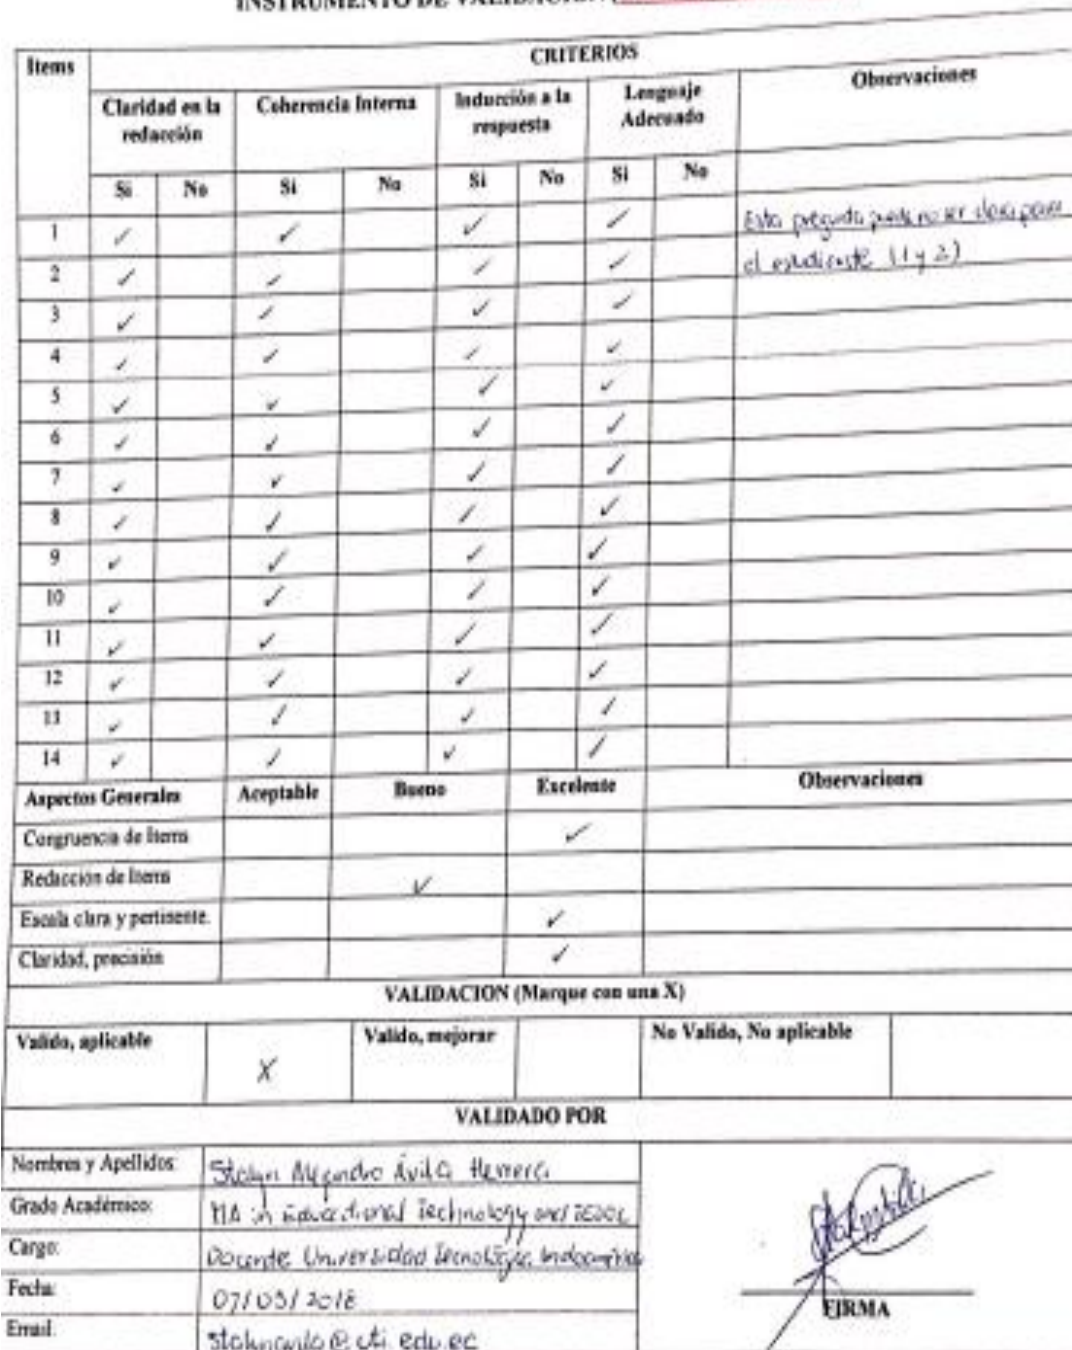 INSTRUMENTO DE VALIDACIÓN
Items
CRITERIOS
Claridad en la redacción
Coherencia Interna
Inducción a la respuesta
Lenguaje Adecuado
Observaciones
Si No Si No Si No Si No
1 ✓ ✓ ✓ ✓ Esta pregunta puede no ser clara para
2 ✓ ✓ ✓ ✓ el estudiante (1 y 2)
3 ✓ ✓ ✓ ✓
4 ✓ ✓ ✓ ✓
5 ✓ ✓ ✓ ✓
6 ✓ ✓ ✓ ✓
7 ✓ ✓ ✓ ✓
8 ✓ ✓ ✓ ✓
9 ✓ ✓ ✓ ✓
10 ✓ ✓ ✓ ✓
11 ✓ ✓ ✓ ✓
12 ✓ ✓ ✓ ✓
13 ✓ ✓ ✓ ✓
14 ✓ ✓ ✓ ✓
Aspectos Generales Aceptable Bueno Excelente Observaciones
Congruencia de Items ✓
Redacción de Items ✓
Escala clara y pertinente. ✓
Claridad, precisión ✓
VALIDACION (Marque con una X)
Valido, aplicable X Valido, mejorar No Valido, No aplicable
VALIDADO POR
Nombres y Apellidos: Stalyn Alejandro Ávila Herrera
Grado Académico: MA in Educational Technology and TESOL
Cargo: Docente Universidad Tecnológica Indoamérica
Fecha: 07/03/2018
Email: @uti.edu.ec
FIRMA